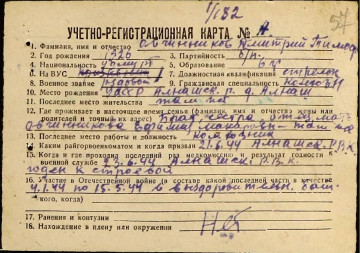 1/132
57
УЧЕТНО-РЕГИСТРАЦИОННАЯ КАРТА № А
1. Фамилия, имя и отчество Овчинников Дмитрий Тимоф
2. Год рождения 1926 3. Партийность б/п
4. Национальность удмурт 5. Образование 6 кл
6. На ВУС 7. Должностная квалификация стрелок
8. Военное звание рядовой 9. Гражданская специальность
10. Место рождения УАССР Алнашск. р. д. Алнаш
11. Последнее место жительства там же
12. Где проживает в настоящее время семья (фамилия, имя, отчество жены или
родителей и точный их адрес) Брат, сестра отец, мать
там же
13. Последнее место работы и должность колхозник
14. Каким райгорвоенкоматом и когда призван 21.6.44 Алнашск. РВК
15. Когда и где проходил последний раз медкомиссию и результат годности к
военной службе 23.6.44 Алнашск. Р.В.К.
годен к строевой
16. Участие в Отечественной войне (в составе какой последней части в качестве
4.1.44 по 15.5.44 в выздоровительн. бат.
кого, когда)
17. Ранения и контузии
Нет
18. Нахождение в плену или окружении